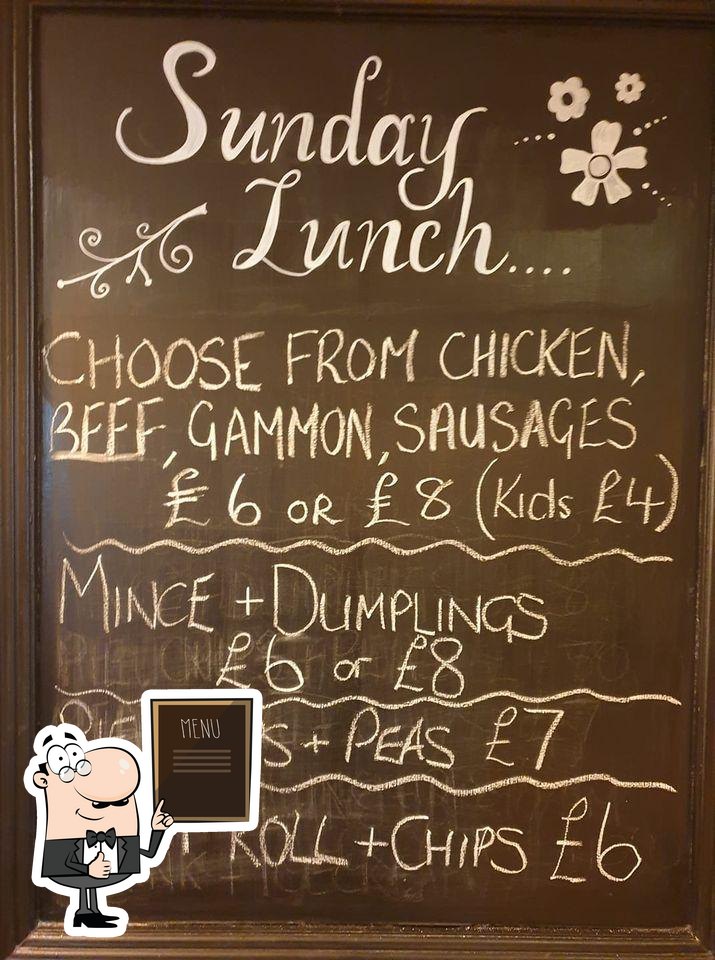 Sunday
Lunch....
CHOOSE FROM CHICKEN,
BEEF, GAMMON, SAUSAGES
£6 OR £8 (Kids £4)
MINCE + DUMPLINGS
£6 or £8
+ PEAS £7
MENU
ROLL + CHIPS £6